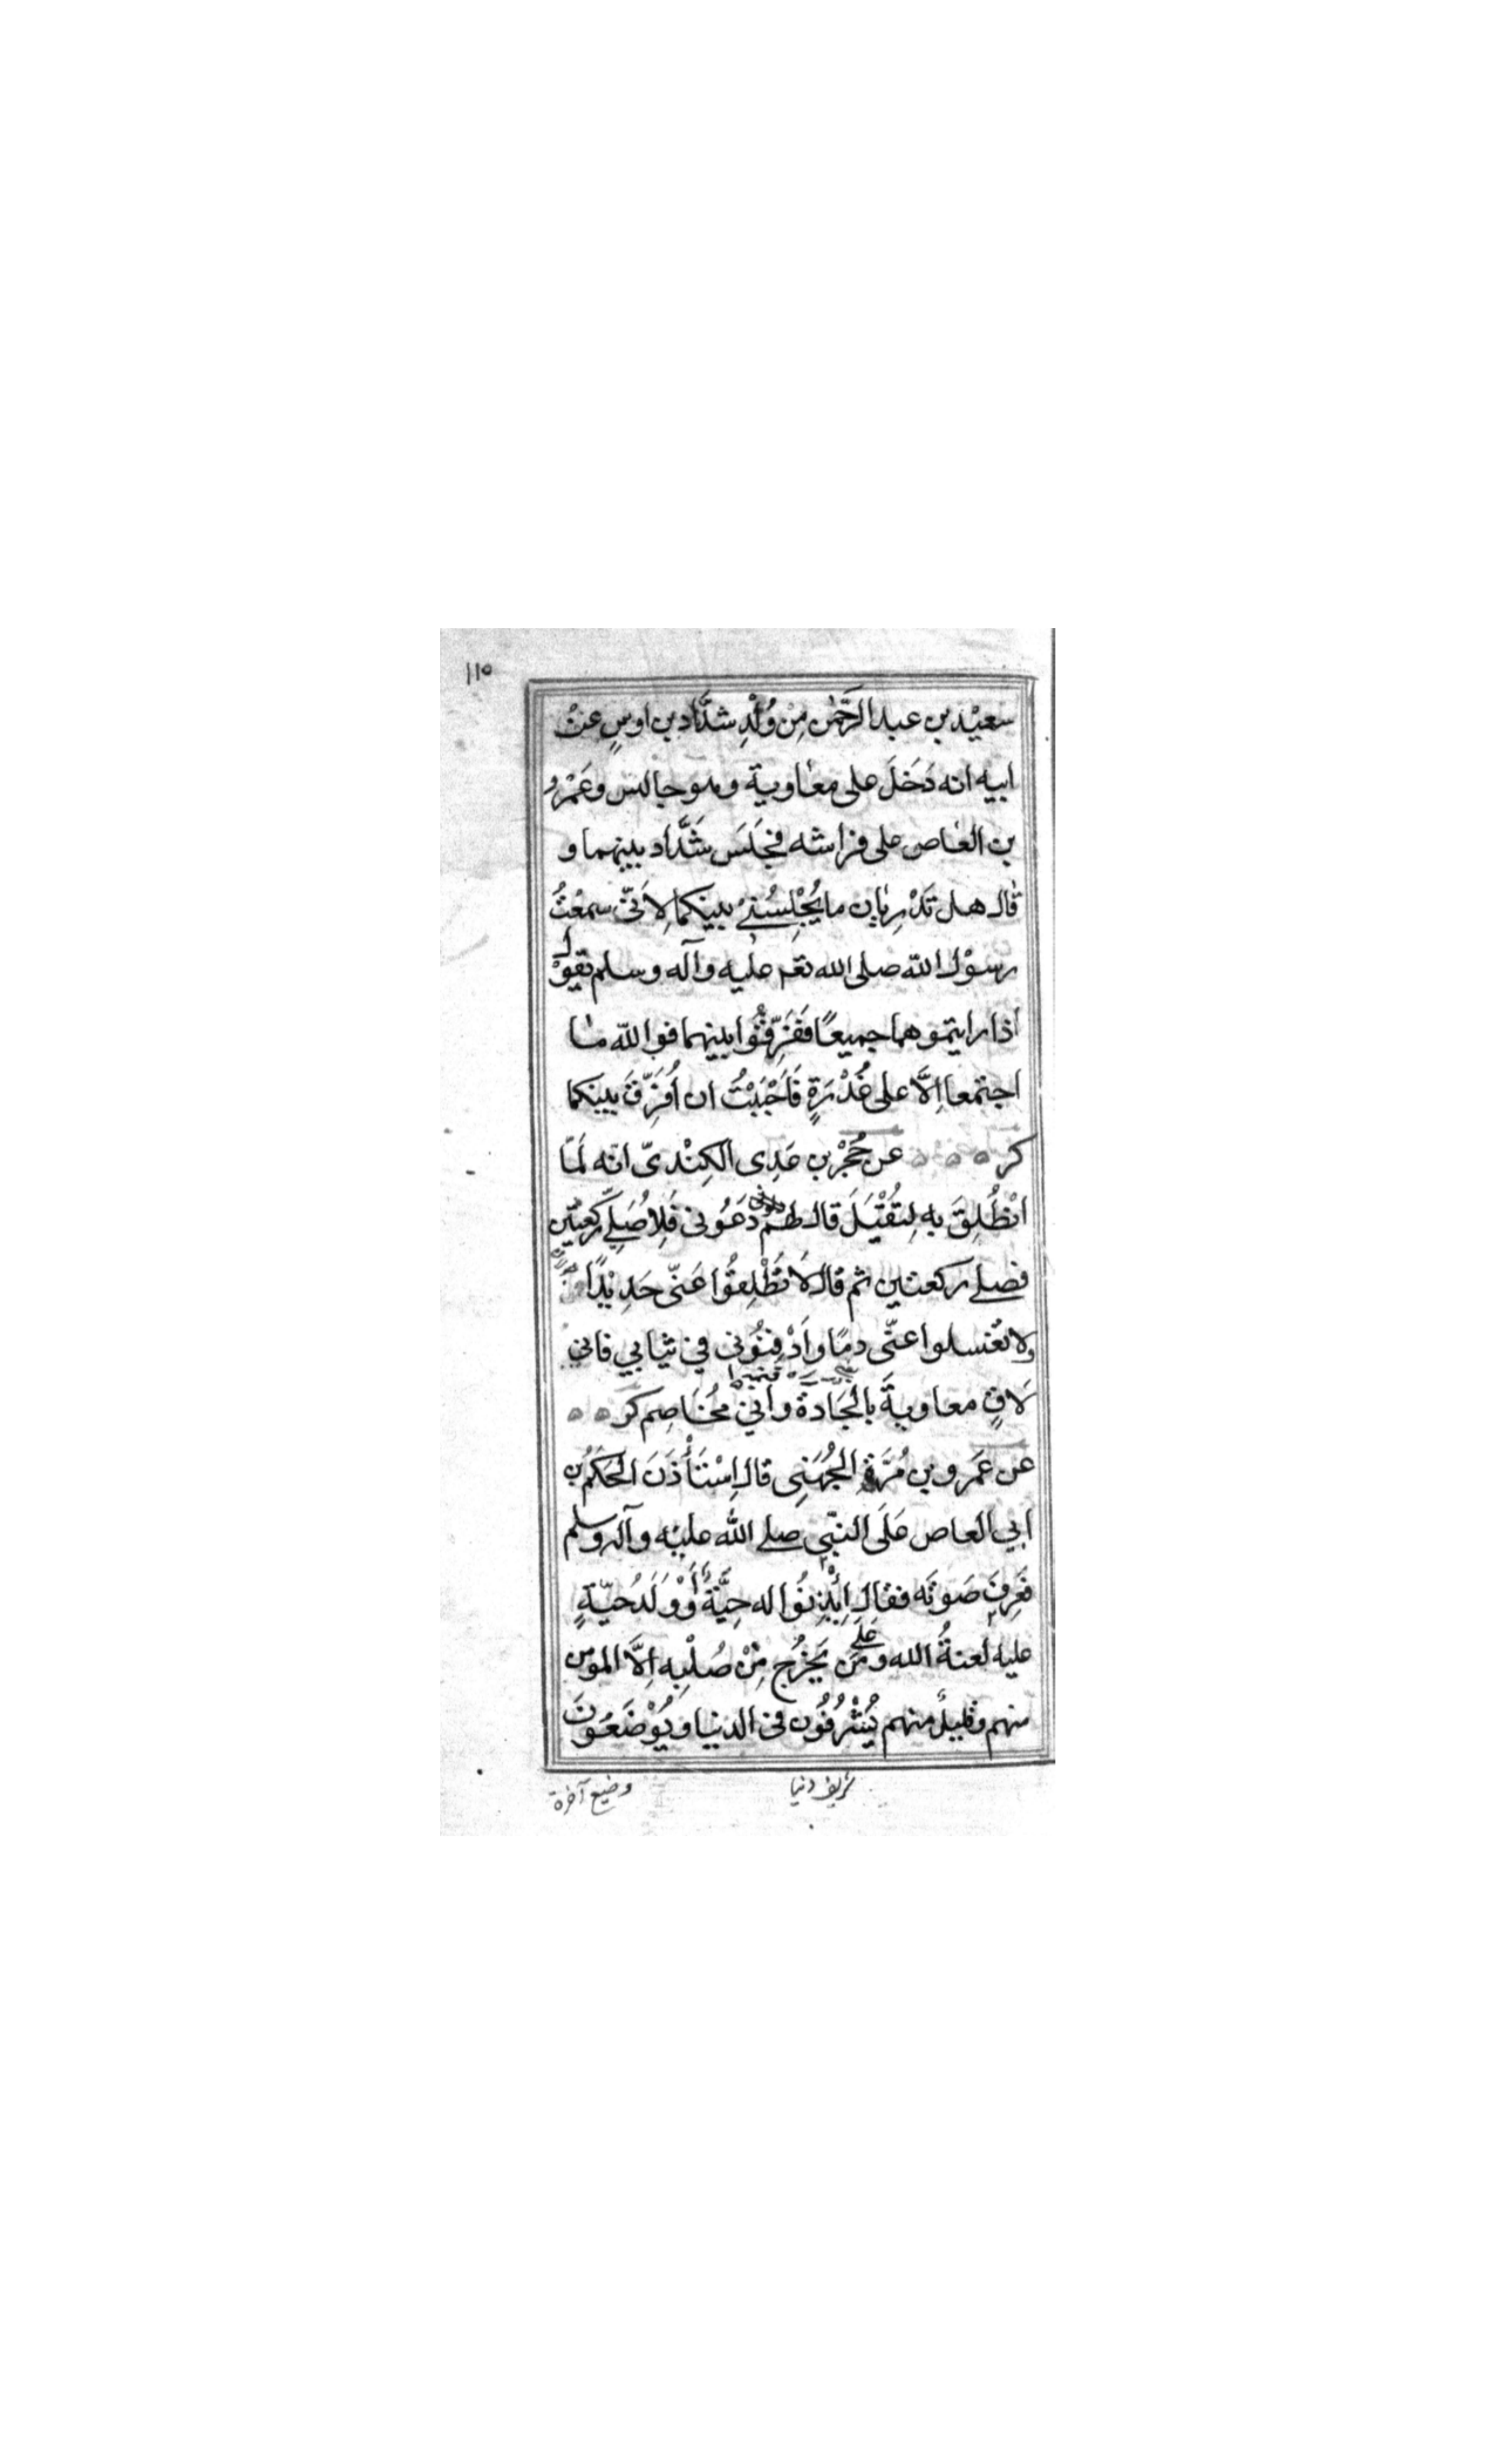 ١١٥
سعيْد بن عبد الرَّحمٰن مِنْ وُلْدِ شدَّاد بن اوسٍ عنْ
ابيه انه دَخَلَ على معٰاوية وهو جالس وعَمْرُو
بن العٰاص على فراشه فجَلَسَ شَدَّاد بينهما و
قٰال هل تَدْرِيٰان ما يُجْلِسُنِيْ بينكما لِاَنّى سمعْتُ
رسوْل اللّه صلى الله تعم عليه وآله وسلم يقوْل
اذا رايتموهما جميعًا فَفَرِّقُوا بينهما فو اللّه مٰا
اجتمعا اِلَّا على غُدْرَةٍ فَاَحْبَبْتُ ان اُفَرِّقَ بينكما
كر ه ه ه عن حُجْرِ بن عَدِى الكِنْدىّ انّه لَمّا
انْطُلِقَ به لِيُقْتَلَ قال لهم دَعُونى فَلِاُصَلِّے ركعتين
فصلے ركعتين ثم قال لَا تُطْلِقُوا عَنّى حَدِيْدًا
ولا تغسلوا عنّى دمًا وَاَدْفِنُوْنى في ثيابي فاني
لَاقٍ معاويةَ بالْجَادة واِنيّ مُخَاصِم كر ه ه
عن عَمرو بن مُرَّةِ الجُهَنِى قال اِسْتَأْذَنَ الحَكَمُ بن
ابي العاص عَلَى النبّي صلے اللّه عليْه وآله وسلم
فَعَرِفَ صَوتَه فقال اِئْذِنُوا له حِيَّةٌ أَوْ وَلَدُ حَيّةٍ
عليه لعنةُ الله وعَلَى مَن يَخرُج مِنْ صُلْبِه اِلَّا المؤمن
منهم وقليلٌ منهم يُشْرَفُون فى الدنيا ويُوْضَعُونَ
شريف دنيا وضيع آخرة